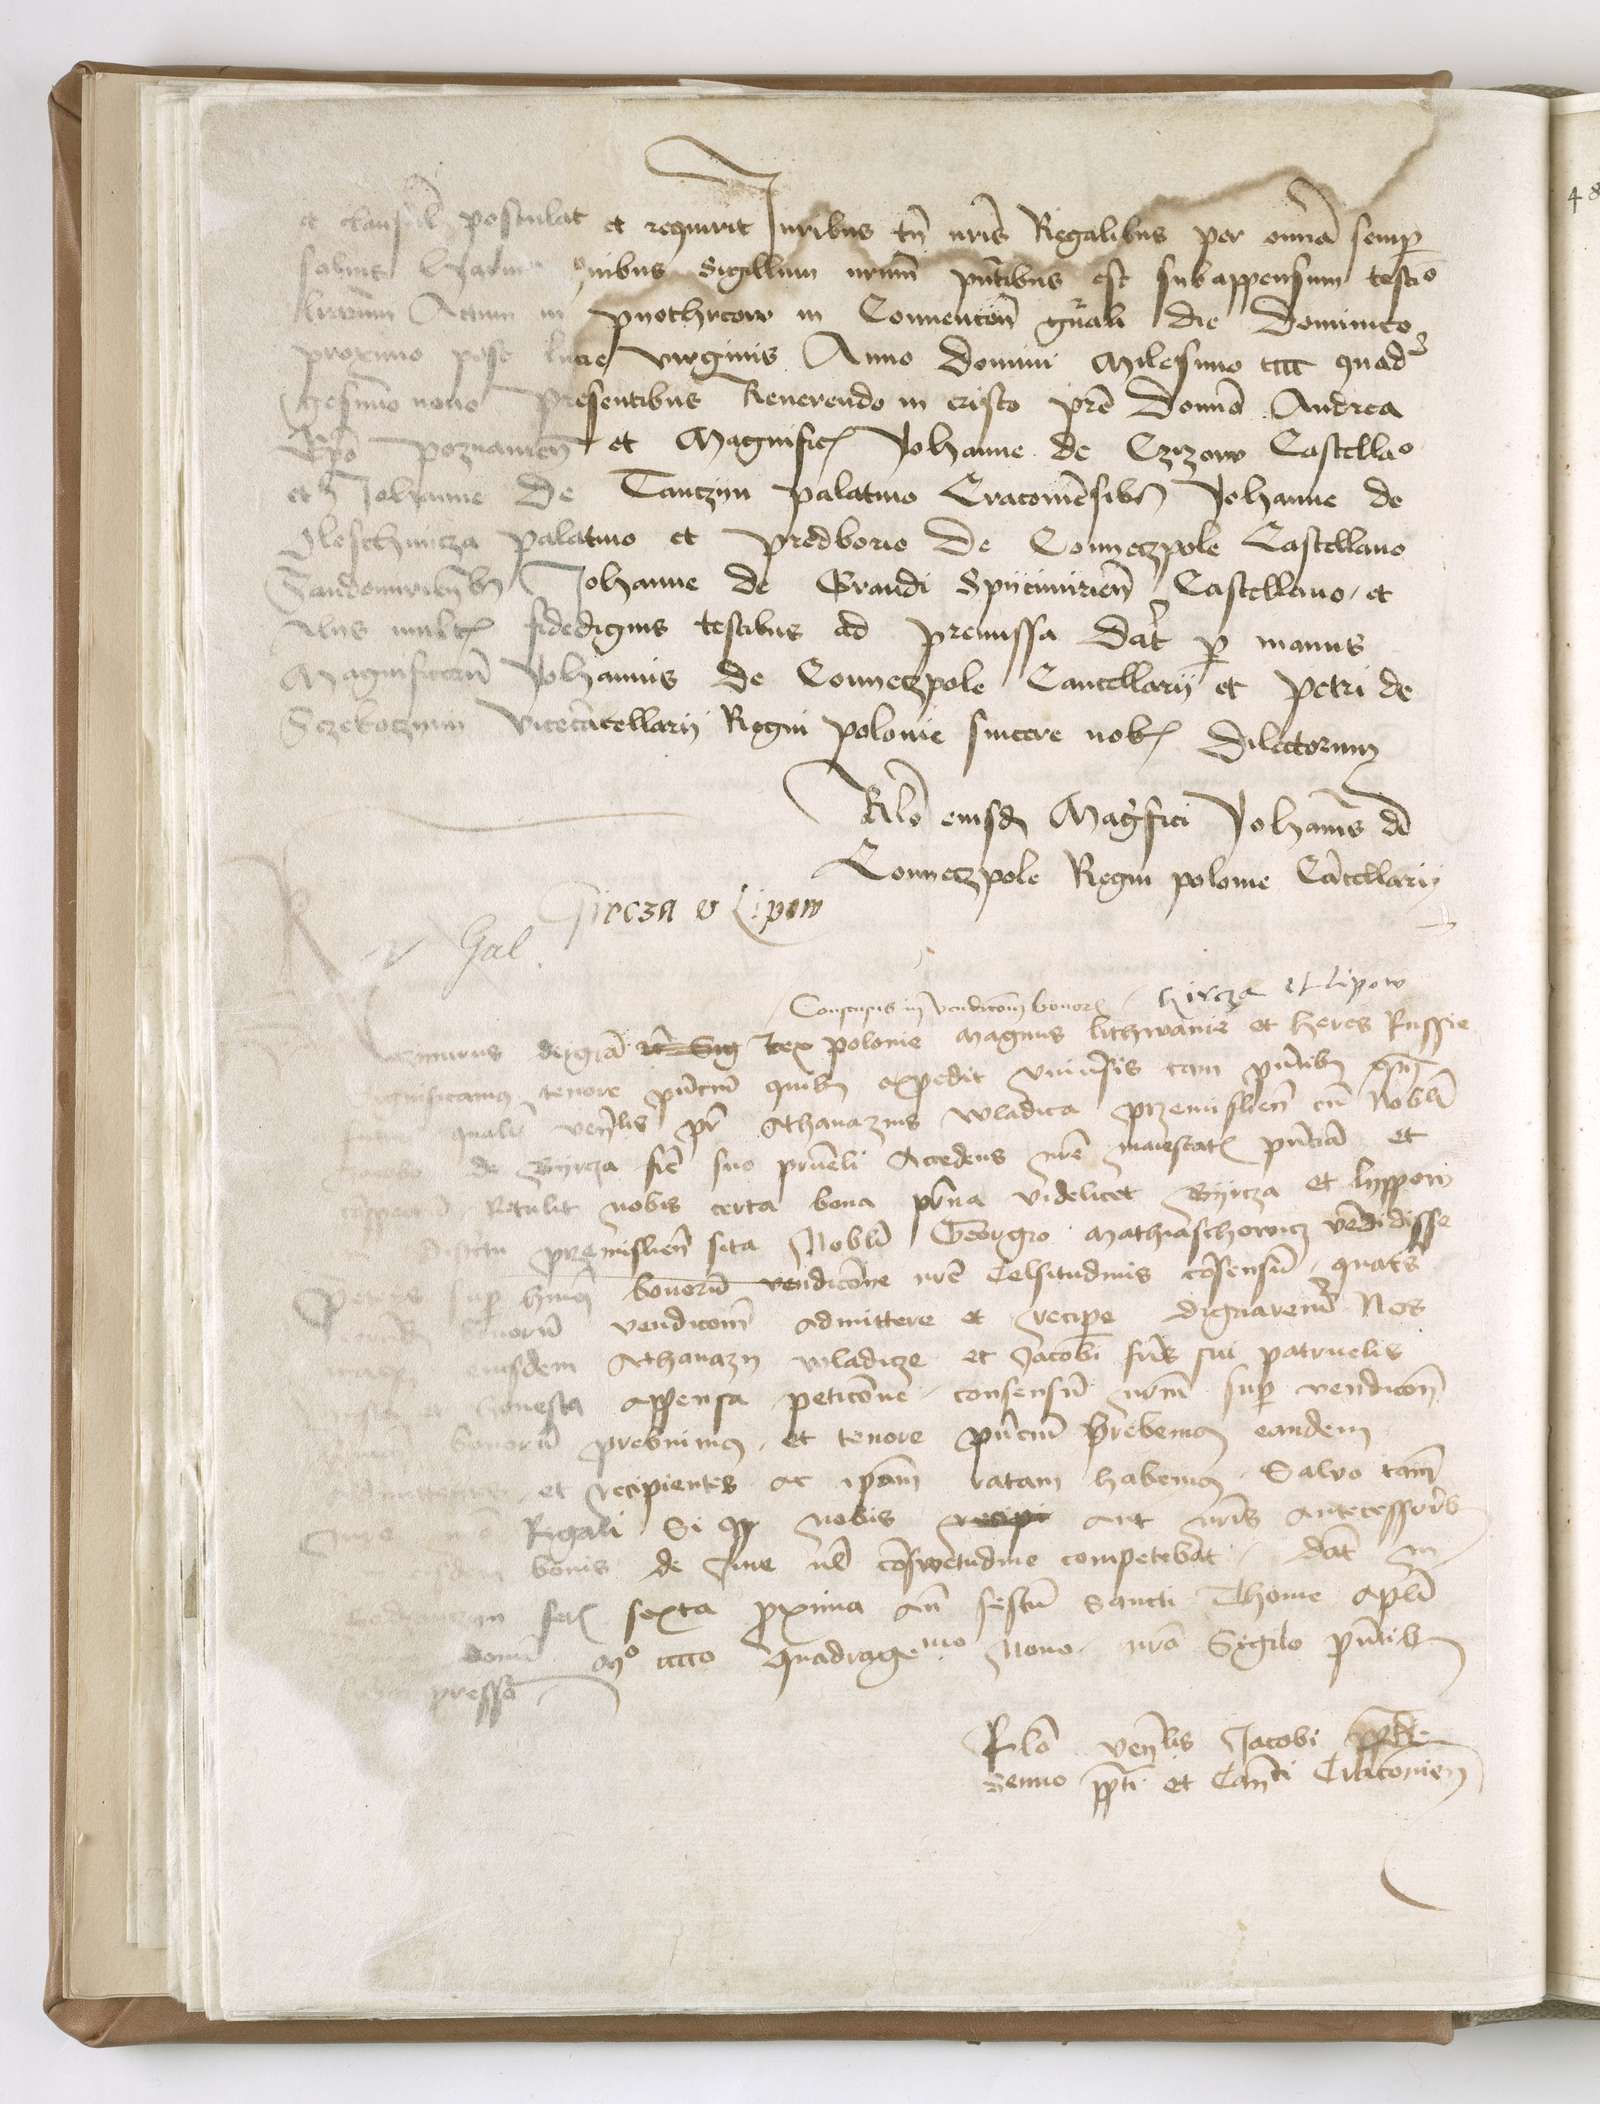 et clausul posculat et requirit Juribus tn nris Regalibus per omnia semp
salvis quibus Sigillum nrum pntibus est subappensum testio
Actum in pyothrcow in Conuencione gnrali die Dominico
proximo post lucie virginis Anno Domini Milesimo cccc quadra
gesimo nono Presentibus Reuerendo in cristo pre Domino Andrea
Epo poznanien et Magnifics Johanne de Czyzow Castellao
et Johanne de Tanczyn palatino Cracouiensibus Johanne de
Oleschnicza palatino et Predborio de Conneczpole Castellano
Sandomiriensibus Johanne de Grandi Spiicimirien Castellano et
Aliis multis fidedignis testibus ad premissa Dat p manus
Magnificorum Johannis de Conneczpole Cancellarij et Petri de
Sczekoczyni vicecancellarij Regni polonie sincere nobis Dilectorum
Rlo eiusdem Magfici Johannis de
Conneczpole Regni polonie Cancellarij
Gircza v Lipow
v Gal
Consensus in vendicom bonor Bircza et Lipow
dei gra Rex polonie Magnus lithwanie et heres Russie
Significamus tenore pncium quibus expedit vniuersis tam pntibus qm
quali venlis pr Athanazius wladica przemislien cum Nobli
Jacobo de Byrcza fre suo prueli Accedens nre maiestatis pnciam et
Retulit nobis certa bona prna videlicet Byrcza et lyppow
premislien sita Nobli Georgio Mathiaschowicz vendidisse
Petens sup bonorum vendicione nre Celsitudinis consensum quats
bonorum vendicionem admittere et recipe dignaremur Nos
eiusdem Athanazy wladicze et Jacobi fris sui patruelis
iusta et honesta appensa peticione consensum nrum sup vendicon
bonorum prebuimus et tenore pncium prebemus eandem
et recipientes ac ipam ratam habemus Salvo tamen
Iure nro Regali Si qr nobis aut nris antecessoribus
bonis de Iure vel consuetudine competebat Dat in
feria sexta proxima an festum Sancti Thome apli
domi Mo cccco quadragemo Nono nro Sigilo pntibus
presso
Rlo venlis Jacobi
Senno ppti et Canci Cracouien